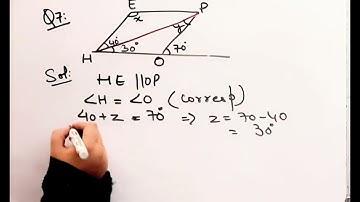 Q7:
E P
x y
40° 30° 70°
H O
Sol:
HE || OP
∠H = ∠O (corresp)
40+z = 70° ⇒ z = 70-40
= 30°